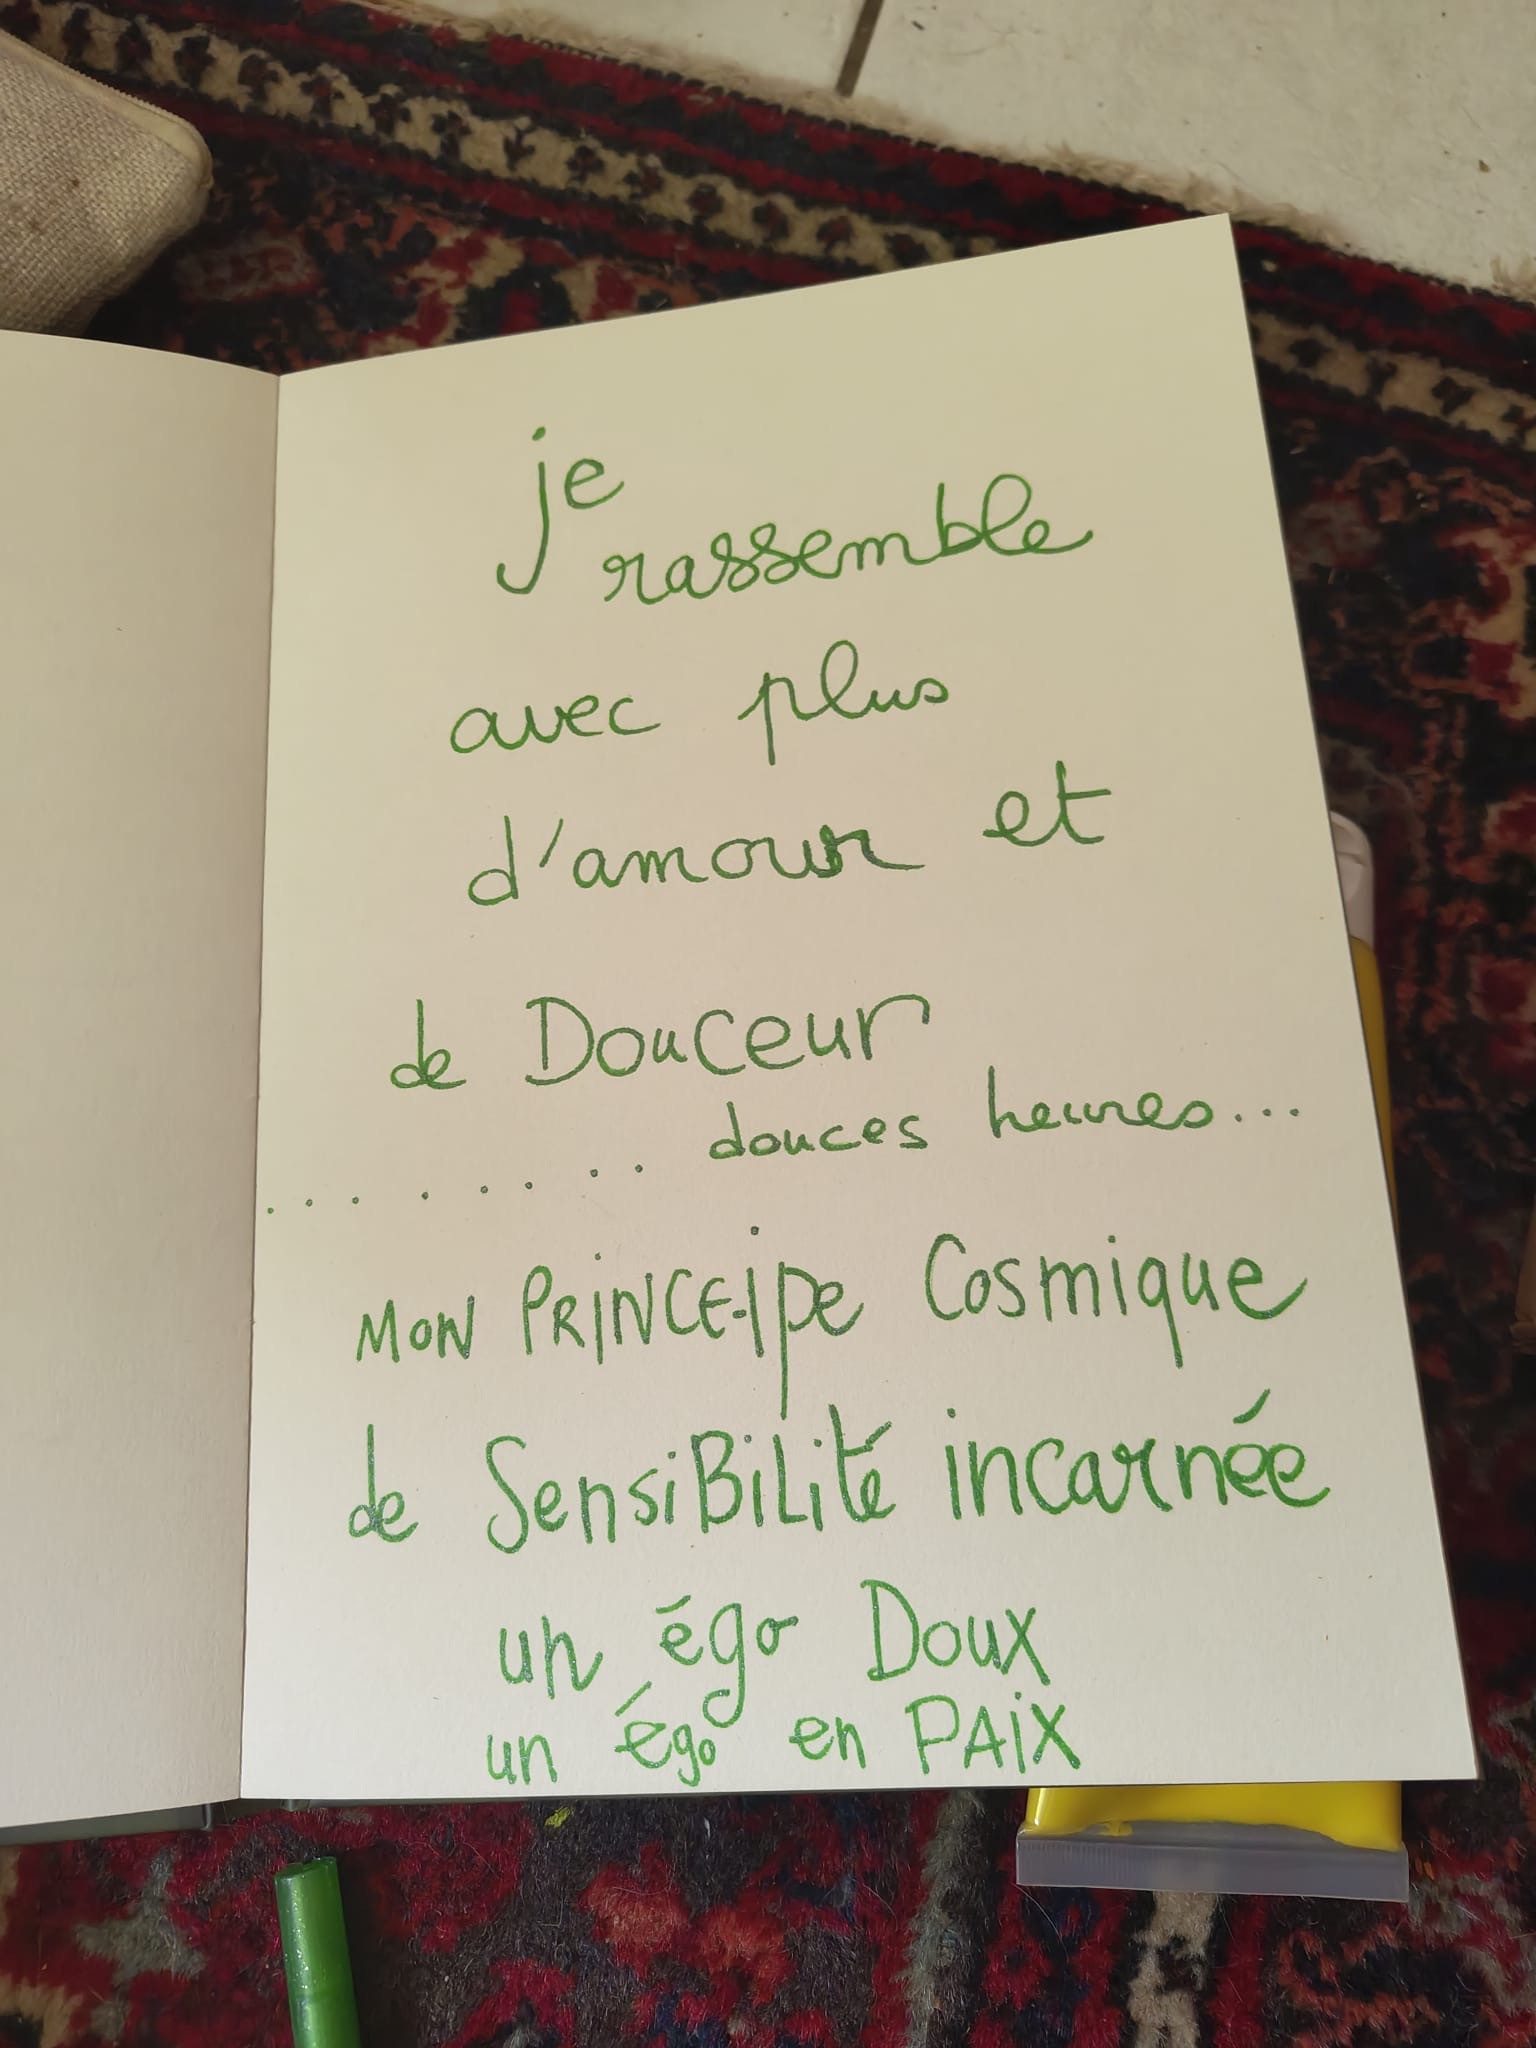 je
rassemble
avec plus
d'amour et
de Douceur
......... douces heures...
MON PRiNCE-ipe Cosmique
de SensiBiLité incarnée
un égo Doux
un égo en PAiX